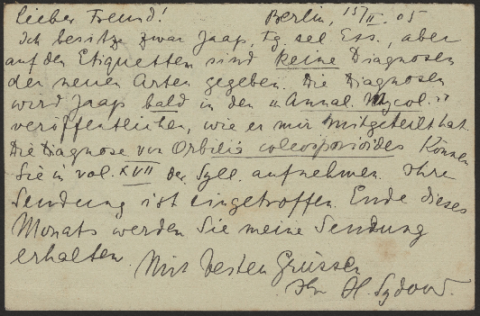 Lieber Freund! Berlin, 15/II. 05
Ich besitze zwar Jaap, Fg. sel. Ess., aber
auf den Etiquetten sind keine Diagnosen
der neuen Arten gegeben. Die Diagnosen
wird Jaap bald in den "Annal. Mycol."
veröffentlichen, wie er mir mitgeteilt hat.
Die Diagnose von Orbilia coleosporioides können
Sie in vol. XVII der Syll. aufnehmen. Ihre
Sendung ist eingetroffen. Ende dieses
Monats werden Sie meine Sendung
erhalten.
Mit besten Grüssen
Ihr H. Sydow.